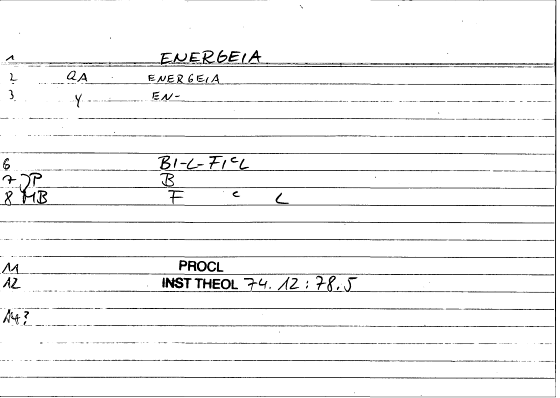 1 ENERGEIA
2 QA ENERGEIA
3 Y EN-
6 BI-L-FICL
7 JP B
8 MB F c L
11 PROCL
12 INST THEOL 74.12:78.5
14?